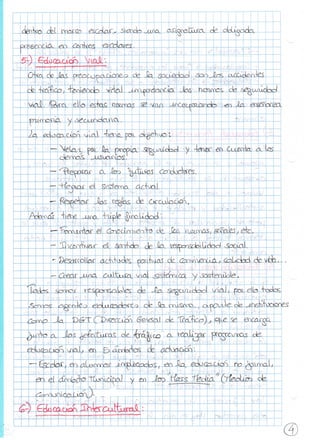 dentro del marco escolar, siendo una asignatura de obligada
presencia en centros escolares.
5-) Educación Vial:
Otra de las preocupaciones de la sociedad son los accidentes
de tráfico, teniendo vital importancia las normas de seguridad
vial. Para ello estas normas se van incorporando en la enseñanza
primaria y secundaria.
La educación vial tiene por objetivo:
- Velar por la propia seguridad y tener en cuenta a los
demás usuarios.
- Preparar a los futuros conductores.
- el sistema actual
- Respetar las reglas de circulación.
Además tiene una triple finalidad:
- Fomentar el conocimiento de las normas, señales, etc.
- Incentivar el sentido de la responsabilidad social.
- Desarrollar actitudes positivas de convivencia, calidad de vida...
- Crear una cultura vial sistémica y sostenible.
Todos somos responsables de la seguridad vial, por ello todos
somos agentes educadores de la misma, aparte de instituciones
como la DGT (Dirección General de Tráfico), que se encarga
junto a las jefaturas de tráfico a realizar programas de
educación vial, en ámbitos de actuación:
- Escolar, en alumnos implicados, en la educación no formal,
en el ámbito Municipal y en los "Mass Media" (Medios de
comunicación).
6-) Educación Intercultural:
4